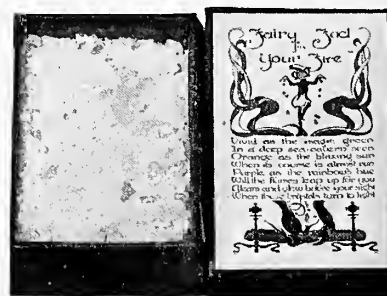 Fairy Fad
for
Your Fire
Vivid as the magic green
In a deep sea-cavern seen
Orange as the blazing sun
When its course is almost run
Purple as the rainbow's hue
Will the flames leap up for you
Gleam and glow before your sight
When these crystals turn to light